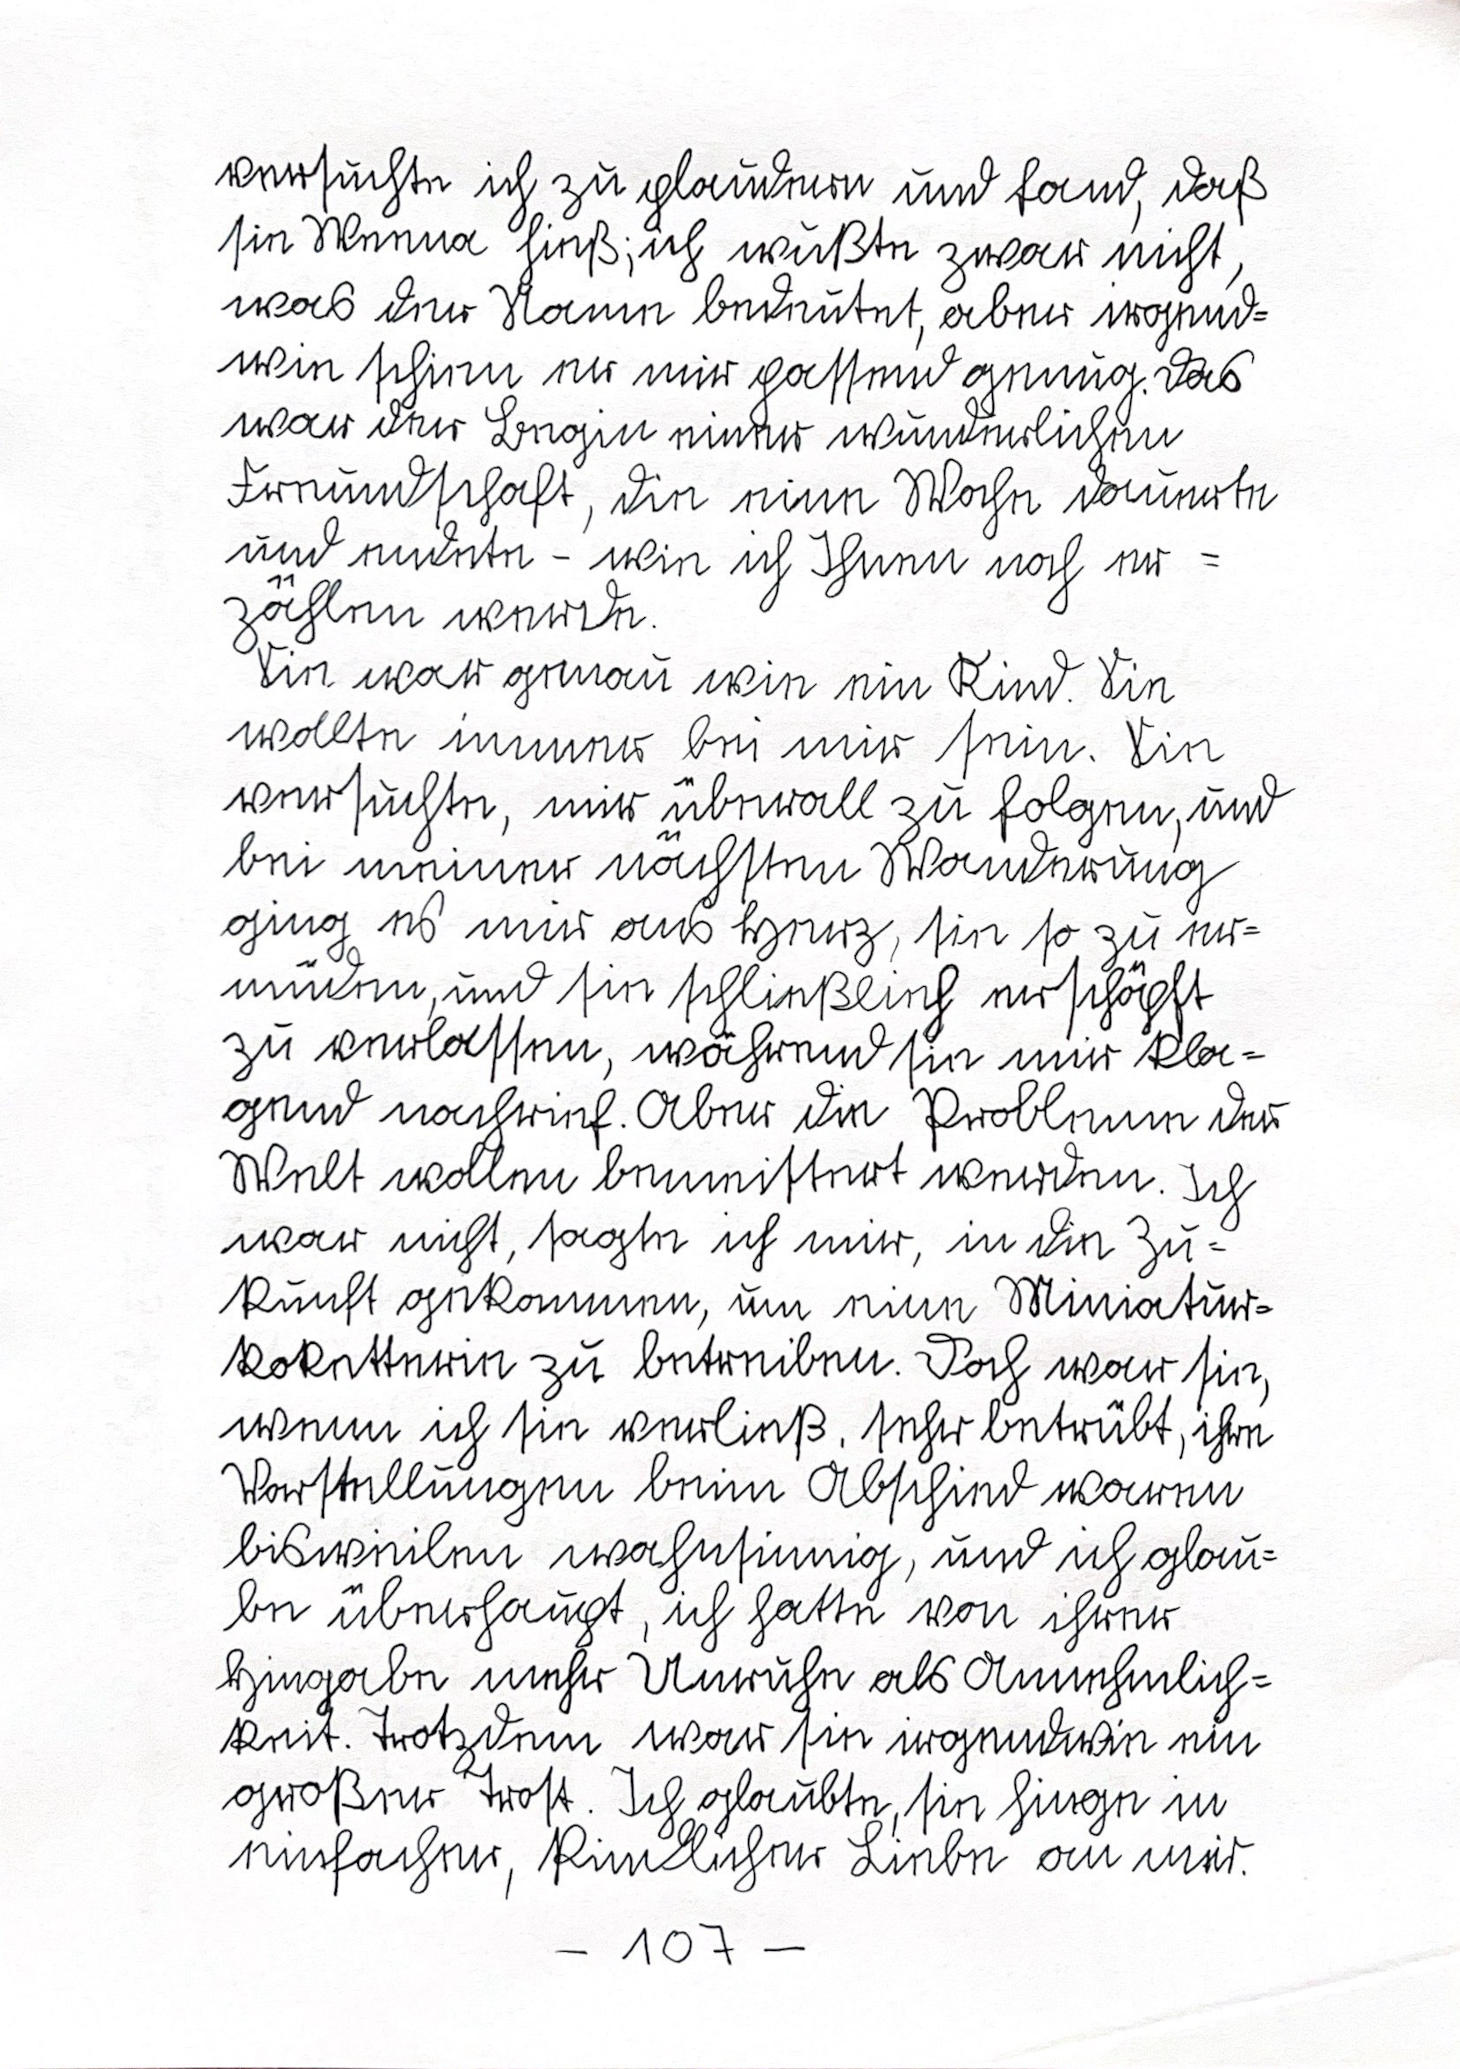 versuchte ich zu plaudern und fand, daß
sie Weena hieß; ich wußte zwar nicht,
was der Name bedeutet, aber irgend=
wie schien er mir passend genug. Das
war der Begin einer wunderlichen
Freundschaft, die eine Woche dauerte
und endete – wie ich Ihnen noch er =
zählen werde.
Sie war genau wie ein Kind. Sie
wollte immer bei mir sein. Sie
versuchte, mir überall zu folgen, und
bei meiner nächsten Wanderung
ging es mir ans Herz, sie so zu er=
müden, und sie schließlich erschöpft
zu verlassen, während sie mir kla=
gend nachrief. Aber die Probleme der
Welt wollen bemeistert werden. Ich
war nicht, sagte ich mir, in die Zu=
kunft gekommen, um eine Miniatur=
koketterie zu betreiben. Doch war sie,
wenn ich sie verließ, sehr betrübt, ihre
Vorstellungen beim Abschied waren
bisweilen wahnsinnig, und ich glau=
be überhaupt, ich hatte von ihrer
Hingabe mehr Unruhe als Annehmlich=
keit. Trotzdem war sie irgendwie ein
großer Trost. Ich glaubte, sie hinge in
einfacher, kindlicher Liebe an mir.
– 107 –